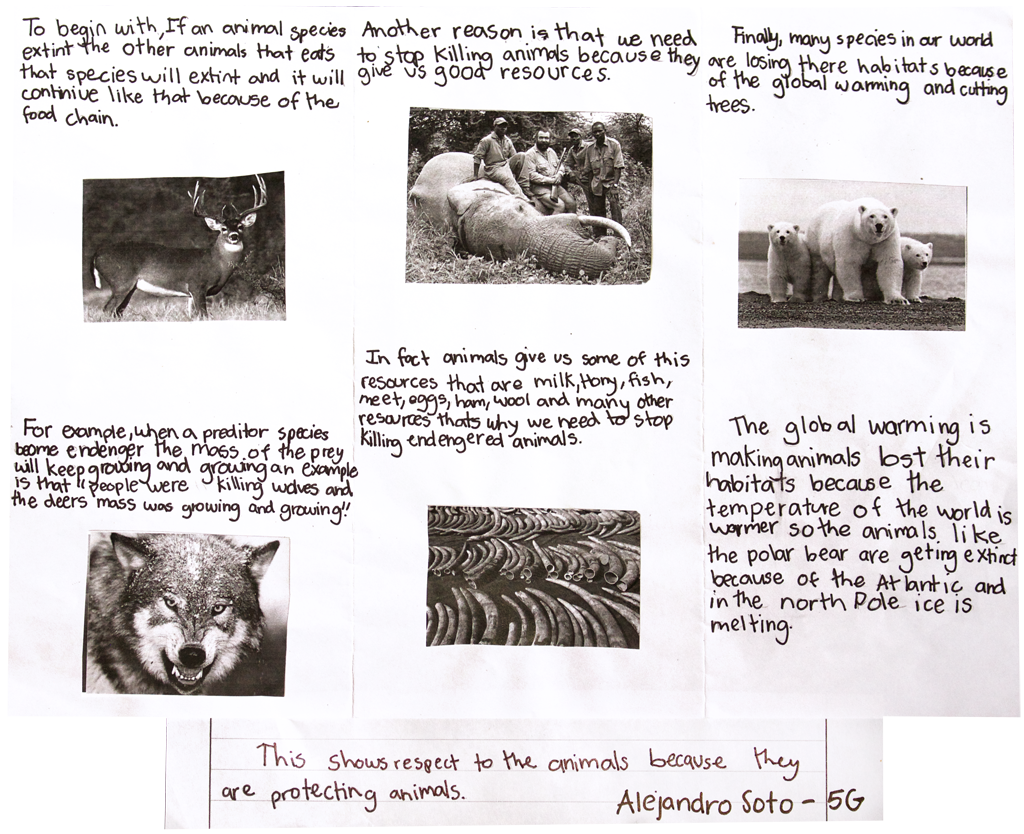 To begin with, If an animal species
extint the other animals that eats
that species will extint and it will
continiue like that because of the
food chain.
For example, when a preditor species
become endenger the mass of the prey
will keep growing and growing an example
is that "people were killing wolves and
the deers mass was growing and growing!!
Another reason is that we need
to stop killing animals because they
give us good resources.
In fact animals give us some of this
resources that are milk, Hony, fish,
meet, eggs, ham, wool and many other
resources thats why we need to stop
killing endengered animals.
Finally, many species in our world
are losing there habitats because
of the global warming and cutting
trees.
The global warming is
making animals lost their
habitats because the
temperature of the world is
warmer so the animals like
the polar bear are geting extinct
because of the Atlantic and
in the north Pole ice is
melting.
This shows respect to the animals because they
are protecting animals.
Alejandro Soto - 5G